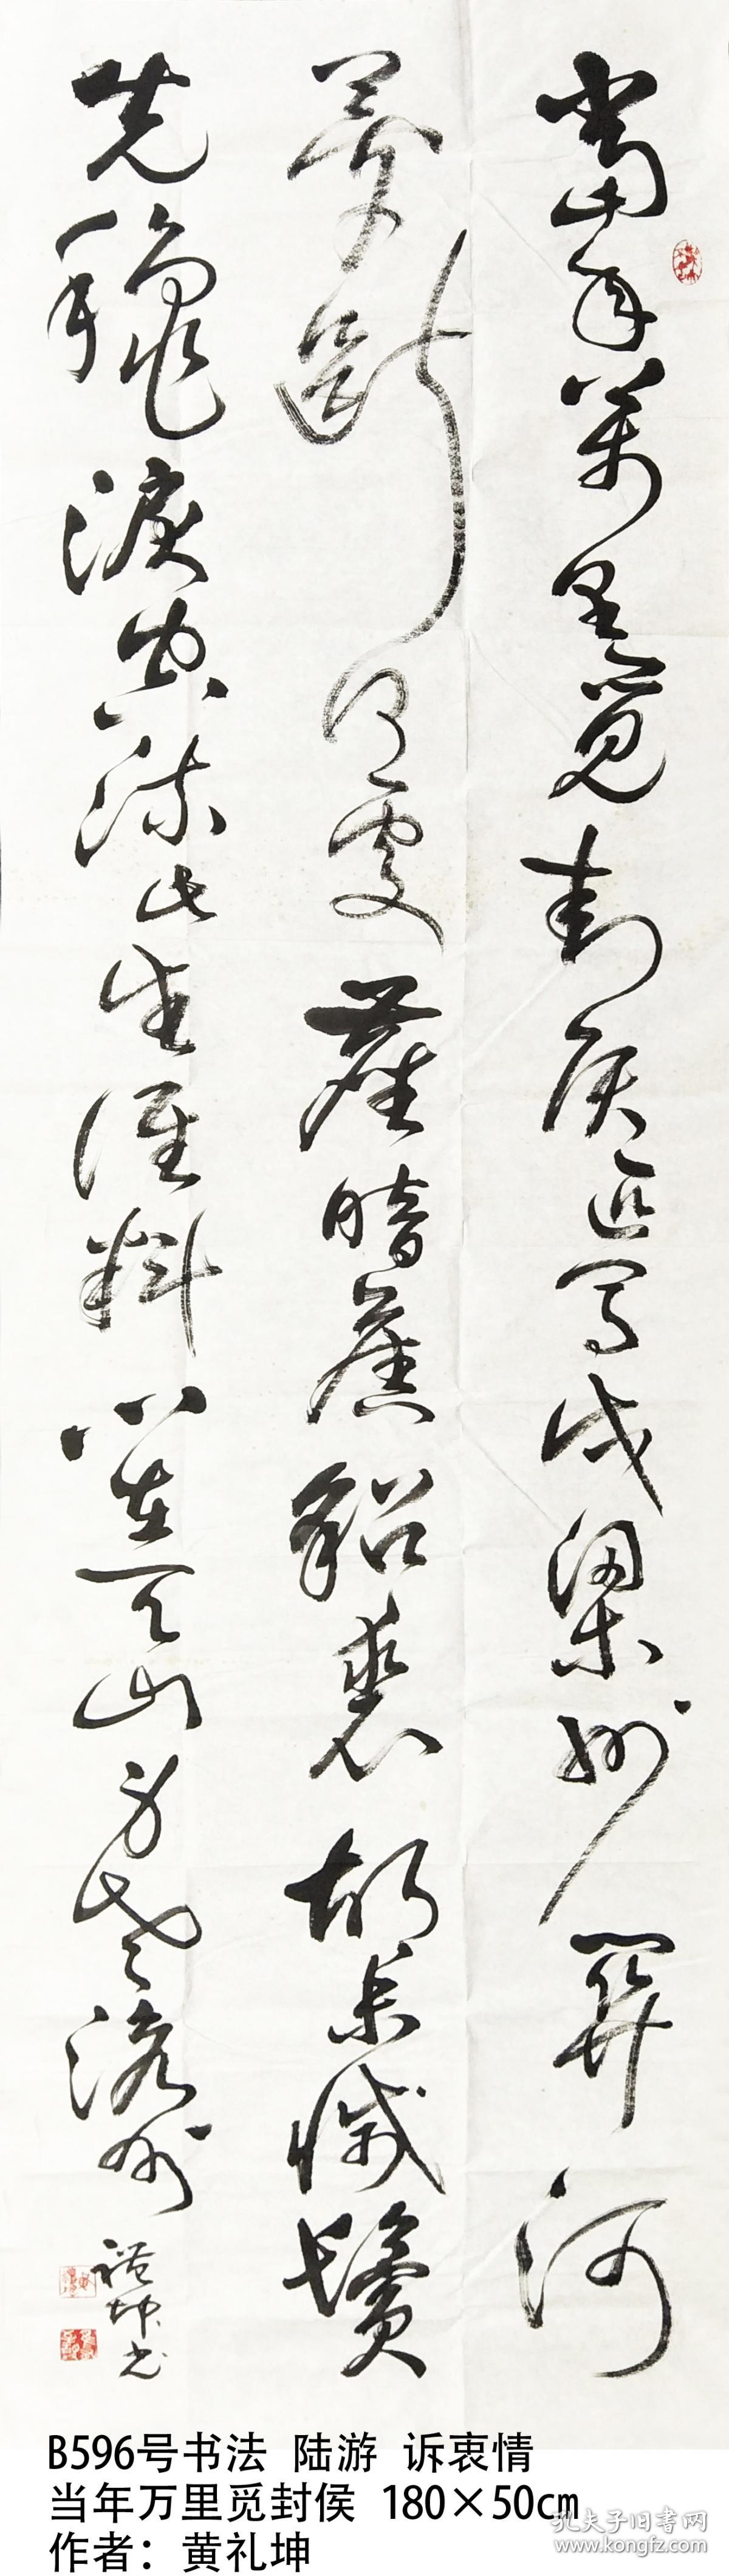 當年萬里覓封侯匹馬戍梁州關河
夢斷何處塵暗舊貂裘胡未滅鬢
先龝淚空流此生誰料心在天山身老滄州
禮坤书
B596号书法 陆游 诉衷情
当年万里觅封侯 180×50cm
作者：黄礼坤
孔夫子旧书网
www.kongfz.com